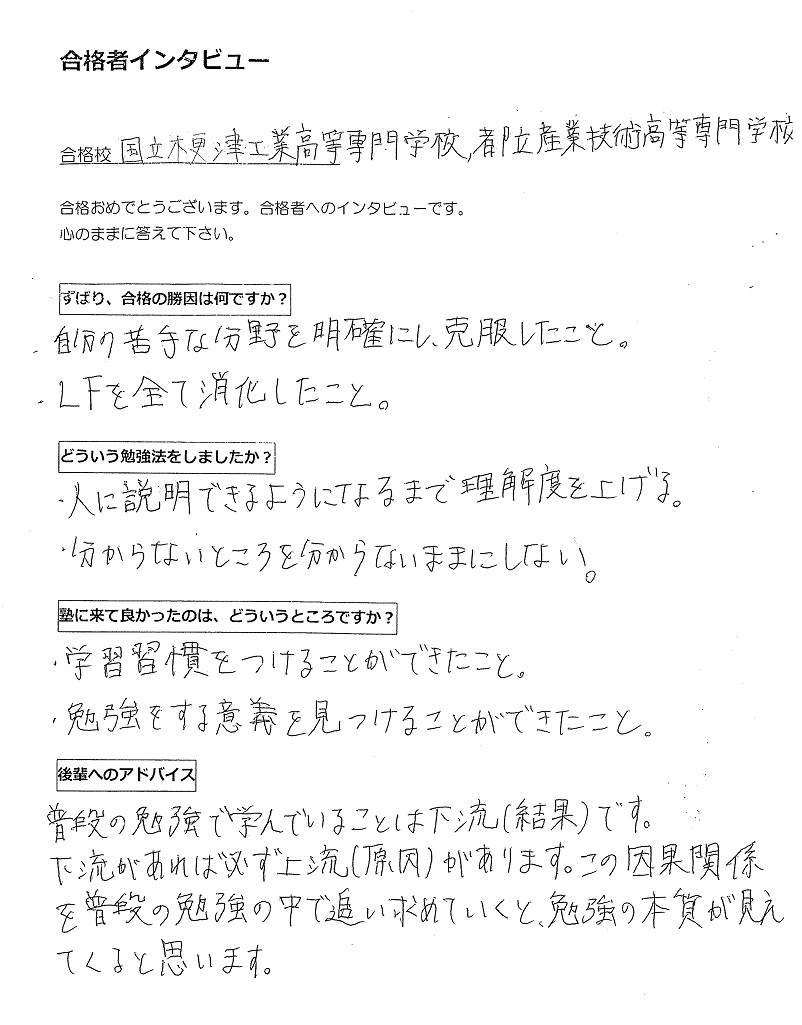 合格者インタビュー
合格校 国立木更津工業高等専門学校,都立産業技術高等専門学校
合格おめでとうございます。合格者へのインタビューです。
心のままに答えて下さい。
ずばり、合格の勝因は何ですか？
・自分の苦手な分野を明確にし、克服したこと。
・LFを全て消化したこと。
どういう勉強法をしましたか？
・人に説明できるようになるまで理解度を上げる。
・分からないところを分からないままにしない。
塾に来て良かったのは、どういうところですか？
・学習習慣をつけることができたこと。
・勉強をする意義を見つけることができたこと。
後輩へのアドバイス
普段の勉強で学んでいることは下流(結果)です。
下流があれば必ず上流(原因)があります。この因果関係
を普段の勉強の中で追い求めていくと、勉強の本質が見え
てくると思います。